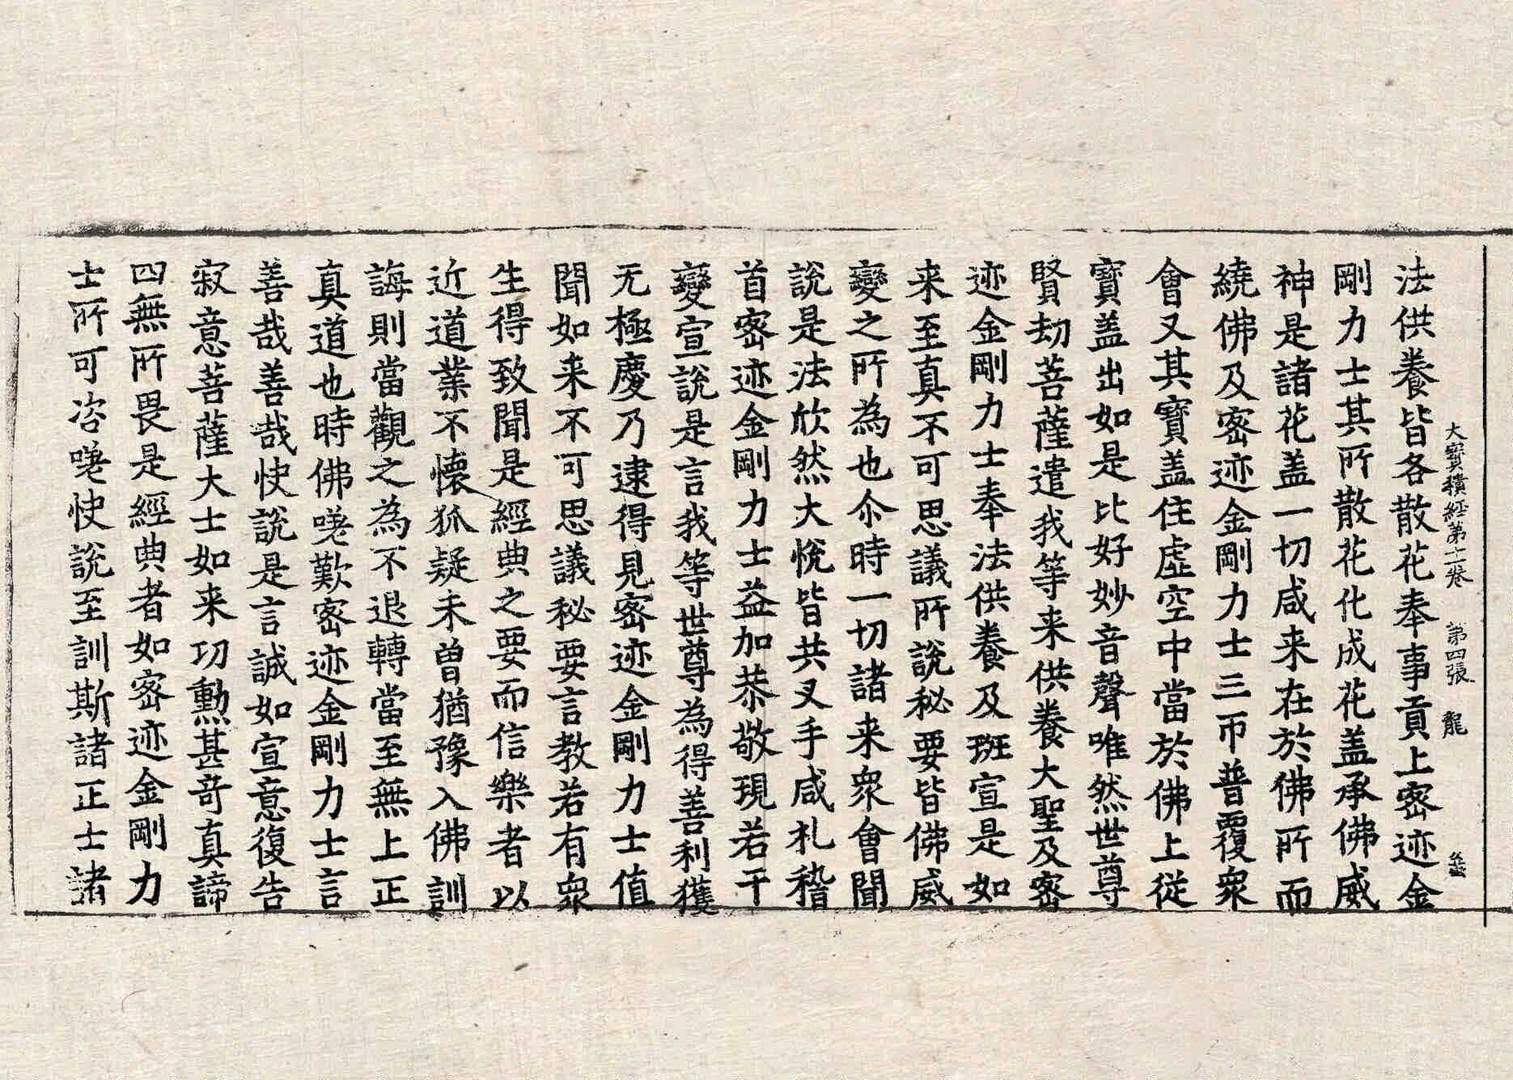 大寶積經第十一卷 第四張 龍
法供養皆各散花奉事貢上密迹金
剛力士其所散花化成花盖承佛威
神是諸花盖一切咸来在於佛所而
繞佛及密迹金剛力士三帀普覆衆
會又其寶盖住虛空中當於佛上従
寶盖出如是比好妙音聲唯然世尊
賢劫菩薩遣我等来供養大聖及密
迹金剛力士奉法供養及班宣是如
来至真不可思議所說秘要皆佛威
變之所為也尒時一切諸来衆會聞
說是法欣然大悅皆共叉手咸礼稽
首密迹金剛力士益加恭敬現若干
變宣說是言我等世尊為得善利獲
无極慶乃逮得見密迹金剛力士值
聞如来不可思議秘要言教若有衆
生得致聞是經典之要而信樂者以
近道業不懷狐疑未曾猶豫入佛訓
誨則當觀之為不退轉當至無上正
真道也時佛嗟歎密迹金剛力士言
善哉善哉快說是言誠如宣意復告
寂意菩薩大士如来功勲甚竒真諦
四無所畏是經典者如密迹金剛力
士所可咨嗟快說至訓斯諸正士諸